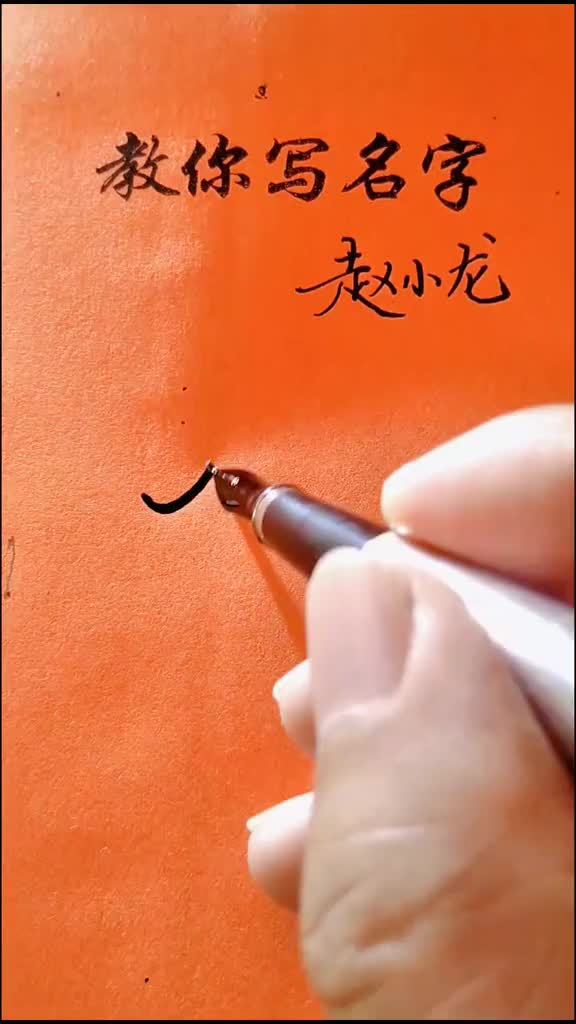 教你写名字
赵小龙